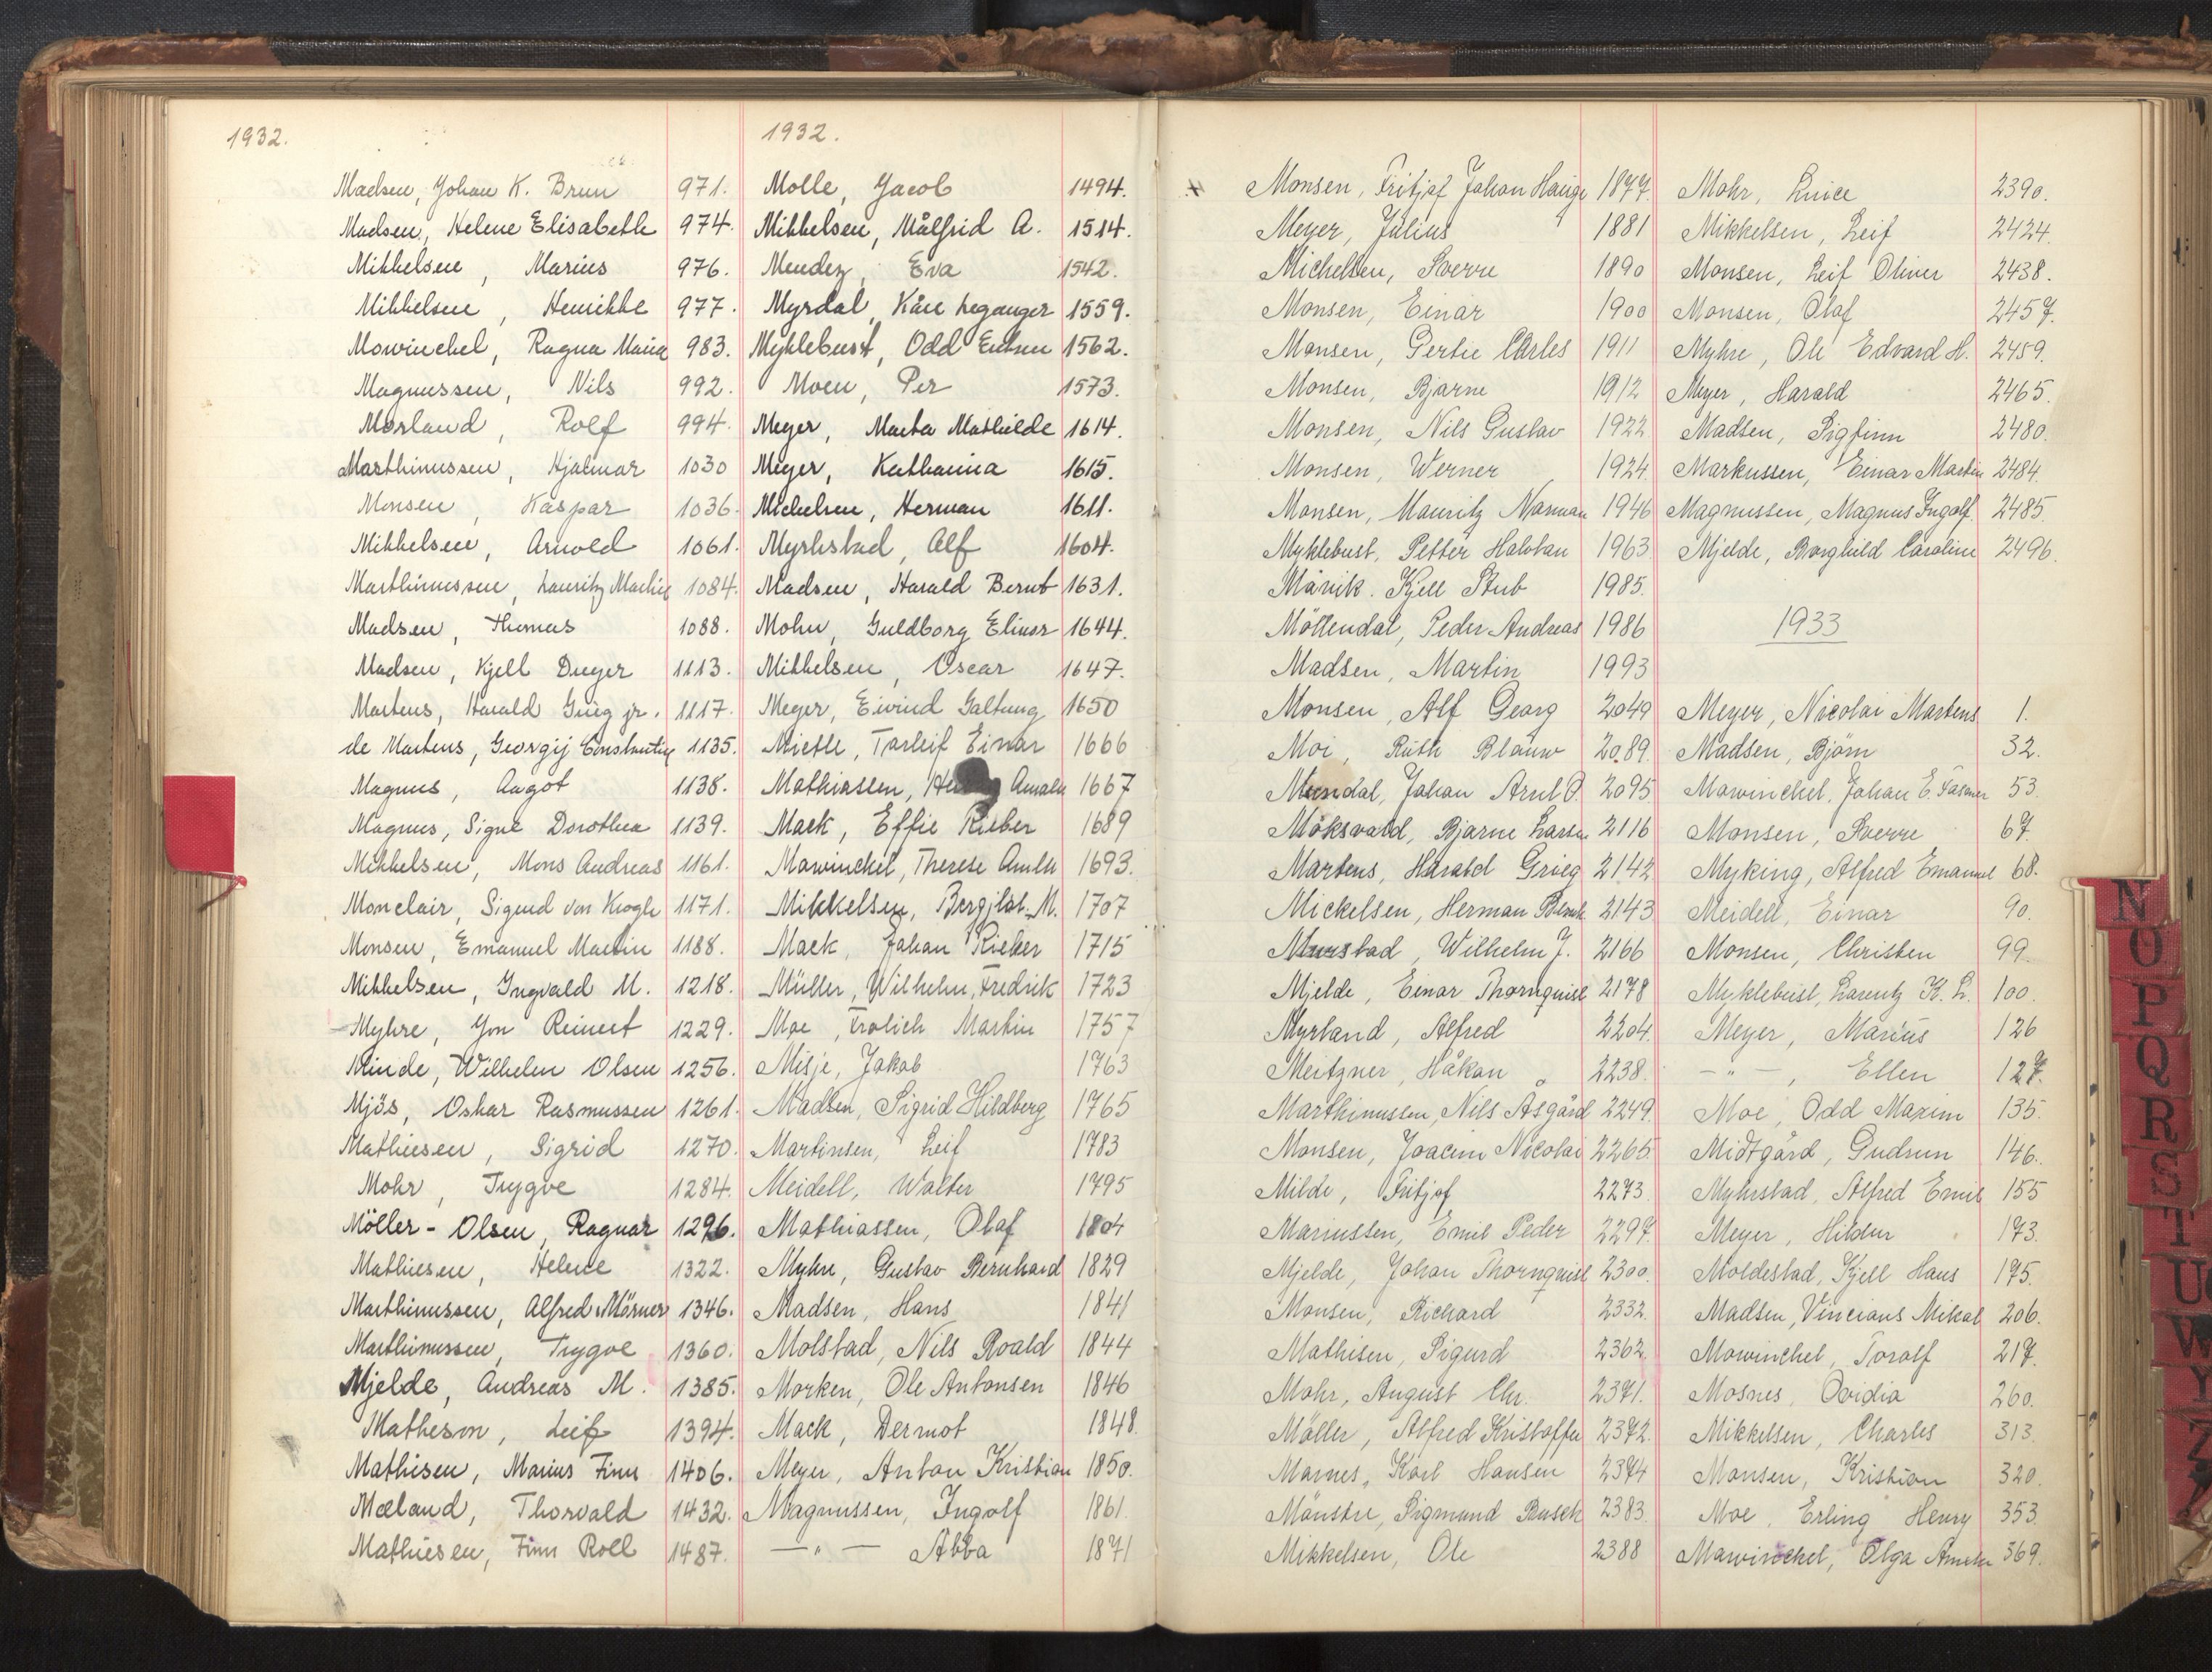 1932.
Madsen, Johan K. Brun 971.
Madsen, Helene Elisabeth 974.
Mikkelsen, Marius 976.
Mikkelsen, Henrikke 977.
Mowinckel, Ragna Maria 983.
Magnussen, Nils 992.
Morland, Rolf 994.
Marthinussen, Hjalmar 1030
Monsen, Kaspar 1036.
Mikkelsen, Arnold 1061.
Marthinussen, Lauritz Mathis 1084.
Madsen, Thomas 1088.
Madsen, Kjell Dreyer 1113.
Martens, Harald Grieg jr. 1117.
de Martens, Georgij Constantin 1135.
Magnus, Aagot 1138.
Magnus, Signe Dorothea 1139.
Mikkelsen, Mons Andreas 1161.
Monclair, Sigurd von Krogh 1171.
Monsen, Emanuel Martin 1188.
Mikkelsen, Ingvald M. 1218.
Myhre, Jon Reinert 1229.
Minde, Wilhelm Olsen 1256.
Mjös, Oskar Rasmussen 1261.
Mathiesen, Sigrid 1270.
Mohr, Trygve 1284.
Möller-Olsen, Ragnar 1296.
Mathiesen, Helene 1322.
Marthinussen, Alfred Mörner 1346.
Marthinussen, Trygve 1360.
Mjelde, Andreas M. 1385.
Matheson, Leif 1394.
Mathisen, Marius Finn 1406.
Mæland, Thorvald 1432.
Mathiesen, Finn Roll 1487.
1932.
Molle, Jacob 1494.
Mikkelsen, Målfrid A. 1514.
Mendez, Eva 1542.
Myrdal, Kåre Leganger 1559.
Myklebust, Odd 1562.
Moen, Per 1573.
Meyer, Marta Mathilde 1614.
Meyer, Katharina 1615.
Michelsen, Herman 1611.
Myrhstad, Alf 1604.
Madsen, Harald Bernt 1631.
Mohn, Guldborg Elinor 1644.
Mikkelsen, Oscar 1647.
Meyer, Eivind Galtung 1650
Mietle, Torleif Einar 1666
Mathiassen, Amalie 1667
Mack, Effie Rieber 1689
Mowinckel, Therese Amalie 1693.
Mikkelsen, Bergjlot M. 1707
Mack, Johan Rieber 1715
Müller, Wilhelm Fredrik 1723
Moe, Frolich Martin 1757
Misje, Jakob 1763
Madsen, Sigrid Hildberg 1765
Martinsen, Leif 1783
Meidell, Walter 1795
Mathiassen, Olaf 1804
Myhre, Gustav Bernhard 1829
Madsen, Hans 1841
Molstad, Nils Roald 1844
Morken, Ole Antonsen 1846
Mack, Dermot 1848.
Meyer, Anton Kristian 1850.
Magnussen, Ingolf 1861.
—"— Abba 1871
Monsen, Fritjof Johan Hauge 1877.
Meyer, Julius 1881
Michelsen, Sverre 1890
Monsen, Einar 1900
Monsen, Gertie Charles 1911
Monsen, Bjarne 1912
Monsen, Nils Gustav 1922
Monsen, Werner 1924
Monsen, Mauritz Norman 1946
Myklebust, Petter Halvdan 1963
Månik. Kjell Stub 1985.
Möllendal, Peder Andreas 1986
Madsen, Martin 1993
Monsen, Alf Georg 2049
Moi, Ruth Blauw 2089.
Mundal, Johan Arnt O. 2095
Möksvold, Bjarne Larsen 2116
Martens, Harald Grieg 2142
Mickelsen, Herman Bernh. 2143
Murstad, Wilhelm J. 2166
Mjelde, Einar Thornquist 2178
Myrland, Alfred 2204.
Meitzner, Håkon 2238.
Marthinussen, Nils Asgård 2249.
Monsen, Joacim Nicolai 2265.
Milde, Fritjof 2273.
Mariussen, Emil Peder 2297.
Mjelde, Johan Thornquist 2300.
Monsen, Richard 2332.
Mathisen, Sigurd 2362.
Mohr, August Chr. 2371.
Möller, Alfred Kristoffer 2372.
Marnes, Karl Hansen 2374
Mönstre, Sigmund Busch 2383.
Mikkelsen, Ole 2388
Mohr, 2390.
Mikkelsen, Leif 2424.
Monsen, Leif Oliver 2438.
Monsen, Olaf 2457.
Myhre, Ole Edvard H. 2459.
Meyer, Harald 2465.
Madsen, Sigfinn 2480.
Markussen, Einar Martin 2484.
Magnussen, Magnus Ingolf. 2485.
Mjelde, Borghild Caroline 2496.
1933
Meyer, Nicolai Martens 1.
Madsen, Björn 32.
Mowinckel, Johan E. Fasmer 53.
Monsen, Sverre 67.
Myking, Alfred Emanuel 68.
Meidell, Einar 90.
Monsen, Christen 99.
Myklebust, Larentz K. L. 100.
Meyer, Marius 126
—"—, Ellen 127.
Moe, Odd Maxim 135.
Midtgård, Gudrun 146.
Myhrstad, Alfred Emil 155
Meyer, Hildur 173.
Moldestad, Kjell Hans 175.
Madsen, Vincians Mikal 206.
Mowinckel, Toralf 217.
Mosnes, Ovidia 260.
Mikkelsen, Charles 313.
Monsen, Kristian 320.
Moe, Erling Henry 353.
Mowinckel, Olga Amalie 369.
N
O
P
Q
R
S
T
U
W
Y
Z